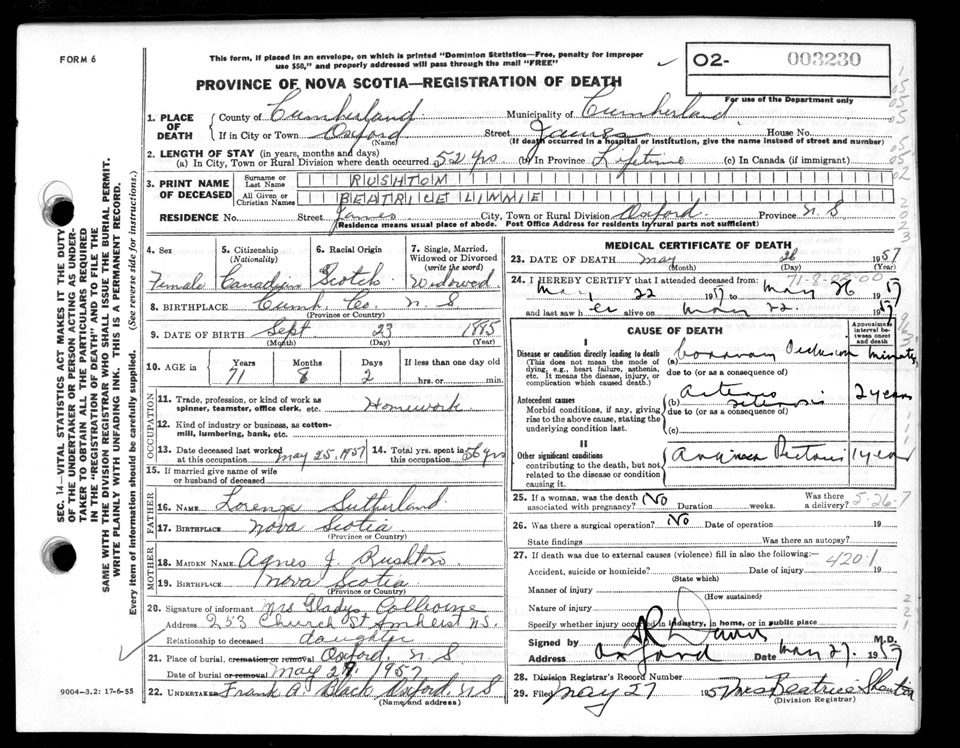 FORM 6
This form, if placed in an envelope, on which is printed "Dominion Statistics—Free, penalty for improper
use $50," and properly addressed will pass through the mail "FREE"
PROVINCE OF NOVA SCOTIA—REGISTRATION OF DEATH
02- 003230
For use of the Department only
1. PLACE OF DEATH County of Cumberland Municipality of Cumberland
If in City or Town Oxford Street James House No.
(Name) (If death occurred in a hospital or institution, give the name instead of street and number)
2. LENGTH OF STAY (in years, months and days)
(a) In City, Town or Rural Division where death occurred 52 yrs (b) In Province Lifetime (c) In Canada (if immigrant)
3. PRINT NAME OF DECEASED Surname or Last Name RUSHTON
All Given or Christian Names BEATRICE LIMMIE
RESIDENCE No. Street James City, Town or Rural Division Oxford Province N S
(Residence means usual place of abode. Post Office Address for residents in rural parts not sufficient)
4. Sex 5. Citizenship (Nationality) 6. Racial Origin 7. Single, Married, Widowed or Divorced (write the word)
Female Canadian Scotch Widowed
8. BIRTHPLACE Cumb. Co. N S
(Province or Country)
9. DATE OF BIRTH Sept 23 1885
(Month) (Day) (Year)
10. AGE in Years Months Days If less than one day old
71 8 2 hrs. or min.
OCCUPATION
11. Trade, profession, or kind of work as
spinner, teamster, office clerk, etc. Homework
12. Kind of industry or business, as cotton-
mill, lumbering, bank, etc.
13. Date deceased last worked at this occupation May 25, 1957 14. Total yrs. spent in this occupation 56 yrs
15. If married give name of wife
or husband of deceased
FATHER
16. NAME Lorenza Sutherland
17. BIRTHPLACE Nova Scotia
(Province or Country)
MOTHER
18. MAIDEN NAME Agnes J. Rushton
19. BIRTHPLACE Nova Scotia
(Province or Country)
20. Signature of informant Mrs Gladys
Address 253 Church St Amherst N.S.
Relationship to deceased daughter
21. Place of burial, cremation or removal Oxford, N S
Date of burial or removal May 1957
22. UNDERTAKER Frank A. Black Oxford, N S
(Name and address)
MEDICAL CERTIFICATE OF DEATH
23. DATE OF DEATH May 26 1957
(Month) (Day) (Year)
24. I HEREBY CERTIFY that I attended deceased from:
May 22 1957 to May 26 1957
and last saw her alive on May 22. 1957
CAUSE OF DEATH
Approximate interval between onset and death
I
Disease or condition directly leading to death
(This does not mean the mode of
dying, e.g., heart failure, asthenia,
etc. It means the disease, injury, or
complication which caused death.)
(a) Coronary Occlusion minutes
due to (or as a consequence of)
Antecedent causes
Morbid conditions, if any, giving
rise to the above cause, stating the
underlying condition last.
(b) Arterio sclerosis 2 years
due to (or as a consequence of)
(c)
II
Other significant conditions
contributing to the death, but not
related to the disease or condition
causing it.
Angina Pectoris 1 year
25. If a woman, was the death associated with pregnancy? No Duration weeks. Was there a delivery?
5-26-7
26. Was there a surgical operation? No Date of operation 19
State findings Was there an autopsy?
27. If death was due to external causes (violence) fill in also the following:—
420.1
Accident, suicide or homicide? Date of injury 19
(State which)
Manner of injury
(How sustained)
Nature of injury
Specify whether injury occurred in industry, in home, or in public place
Signed by M.D.
Address Oxford Date May 27. 1957
28. Division Registrar's Record Number
29. Filed May 27 1957 Mrs Beatrice
(Division Registrar)
SEC. 14—VITAL STATISTICS ACT MAKES IT THE DUTY
OF THE UNDERTAKER OR PERSON ACTING AS UNDER-
TAKER TO OBTAIN ALL THE PARTICULARS REQUIRED
IN THE "REGISTRATION OF DEATH" AND TO FILE THE
SAME WITH THE DIVISION REGISTRAR WHO SHALL ISSUE THE BURIAL PERMIT.
WRITE PLAINLY WITH UNFADING INK. THIS IS A PERMANENT RECORD.
Every item of information should be carefully supplied. (See reverse side for instructions.)
9004-3.2: 17-6-55